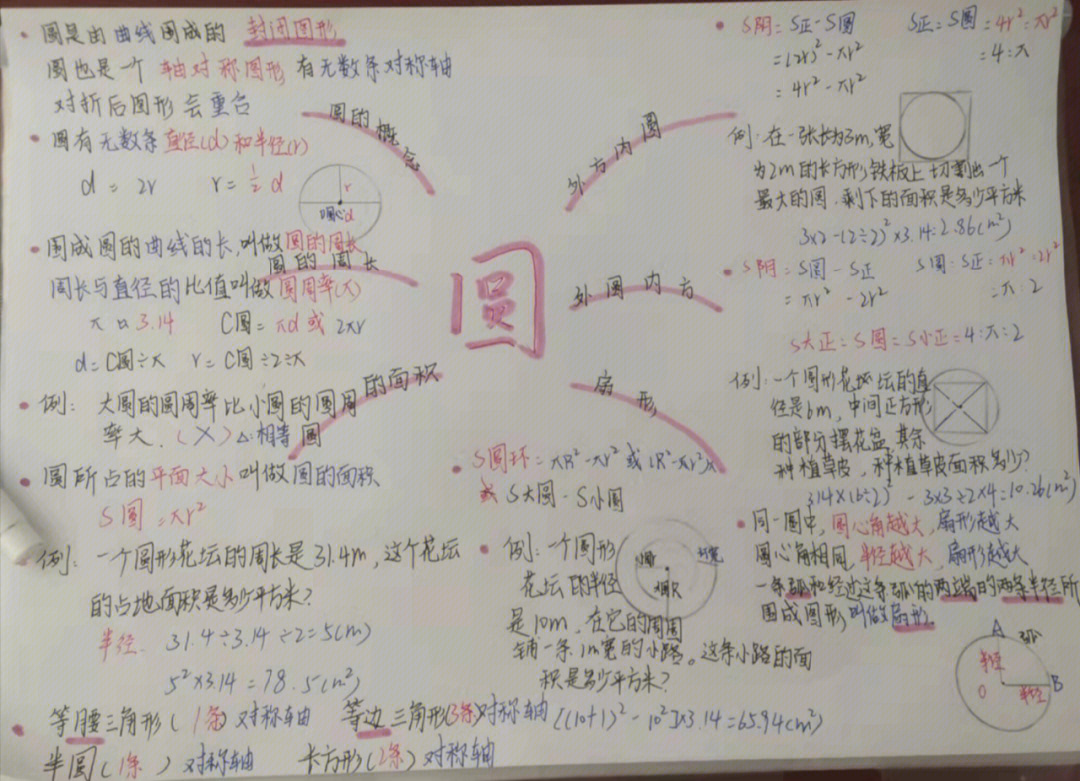 圆是由曲线围成的 封闭图形
圆也是一个 轴对称图形 有无数条对称轴
对折后图形会重合
圆的概念
圆有无数条直径(d)和半径(r)
d = 2r r = 1/2 d
r
圆心 d
围成圆的曲线的长,叫做圆的周长
圆的周长
周长与直径的比值叫做圆周率(π)
π ≈ 3.14 C圆 = πd 或 2πr
d = C圆÷π r = C圆÷2÷π
圆的面积
例: 大圆的圆周率比小圆的圆周
率大. (×) △:相等
圆所占的平面大小叫做圆的面积
S圆 = πr²
例: 一个圆形花坛的周长是31.4m, 这个花坛
的占地面积是多少平方米?
半径. 31.4÷3.14÷2=5(m)
5²×3.14=78.5(m²)
等腰三角形(1条)对称轴 等边三角形(3条)对称轴
半圆(1条) 对称轴 长方形(2条)对称轴
圆
外方内圆
S阴 = S正-S圆 S正:S圆=4r²:πr²
=(2r)²-πr² =4:π
=4r²-πr²
例:在一张长为3m,宽
为2m的长方形铁板上切割出一个
最大的圆.剩下的面积是多少平方米
3×2-(2÷2)²×3.14=2.86(m²)
外圆内方
S阴 = S圆-S正 S圆:S正=πr²:2r²
=πr²-2r² =π:2
S大正:S圆:S小正=4:π:2
例:一个圆形花坛的直
径是6m, 中间正方形
的部分摆花盆,其余
种植草皮,种植草皮面积多少?
3.14×(6÷2)²-3×3÷2×4=10.26(m²)
扇形
S圆环=πR²-πr² 或
或 S大圆-S小圆
例:一个圆形
花坛的半径
是10m, 在它的周围
铺一条1m宽的小路。这条小路的面
积是多少平方米?
[(10+1)²-10²]×3.14=65.94(m²)
环宽
同一圆中,圆心角越大,扇形越大
圆心角相同,半径越大,扇形越大
一条弧和经过这条弧的两端的两条半径所
围成图形叫做扇形.
A 弧
半径
O 半径 B